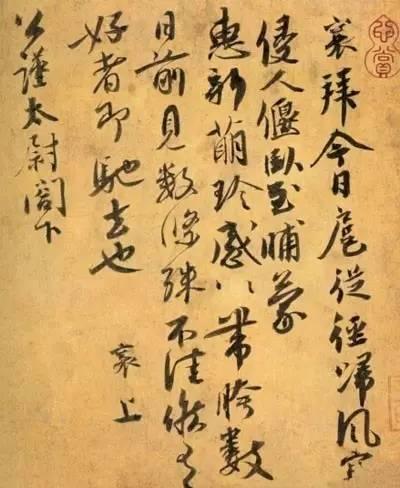 襄拜今日扈從徑歸風寒
侵人偃臥至晡蒙
惠新萌珍感〻帶胯數
日前見數條殊不佳候有
好者即馳去也
襄上
公謹太尉閤下